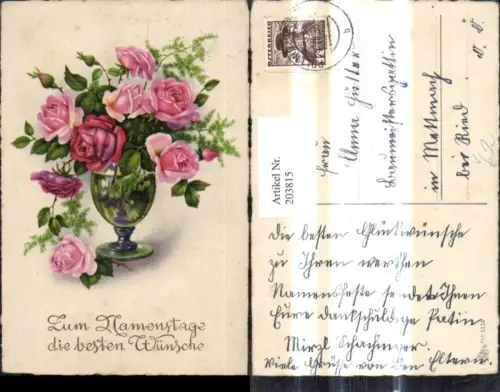 Zum Namenstage
die besten Wünsche
Artikel Nr.
203815
ÖSTERREICH
Frau
Anna Hütter
Baumeistersgattin
in Mettmach
bei Ried
Die besten Glückwünsche
zu Ihren werthen
Namensfeste sendet Ihnen
Eure dankschuldige Patin
Mirzl Schachinger.
Viele Grüße von den Eltern.